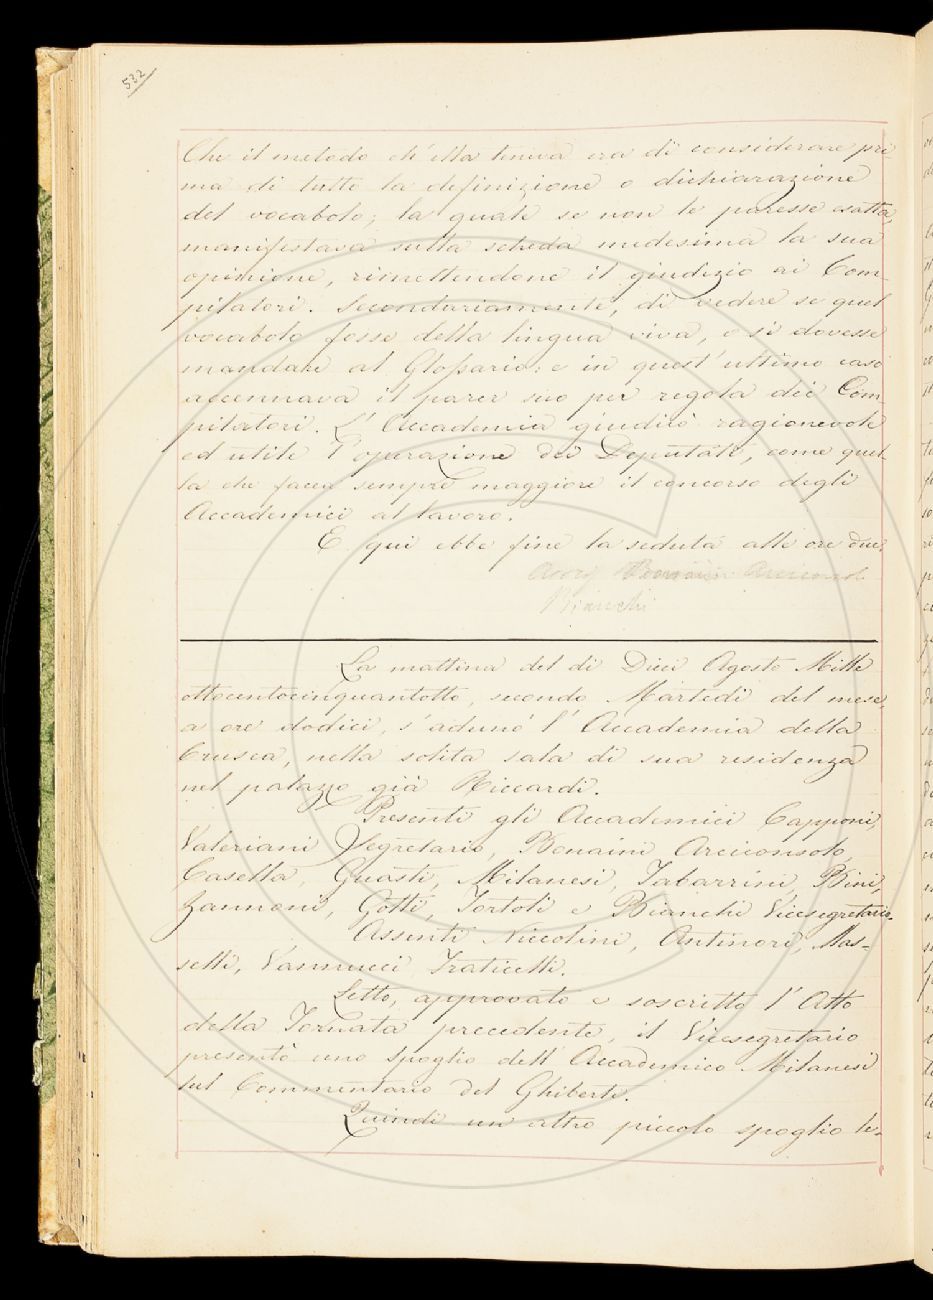 532
Che il metodo ch'ella teneva era di considerare pri-
ma di tutto la definizione o dichiarazione
del vocabolo; la quale se non le paresse esatta,
manifestava sulla scheda medesima la sua
opinione, rimettendone il giudizio ai Com-
pilatori. Secondariamente, di vedere se quel
vocabolo fosse della lingua viva, o si dovesse
mandare al Glossario: e in quest'ultimo caso
accennava il parer suo per regola dei Com-
pilatori. L'Accademia giudicò ragionevole
ed utile l'operazione dei Deputati, come quel-
la che facea sempre maggiore il concorso degli
Accademici al lavoro.
E qui ebbe fine la seduta alle ore due.
Bonaini Arciconsolo
Bianchi
La mattina del di Dieci Agosto Mille
ottocentocinquantotto, secondo Martedì del mese,
a ore dodici, s'adunò l'Accademia della
Crusca, nella solita sala di sua residenza
nel palazzo già Riccardi.
Presenti gli Accademici Capponi,
Valeriani Segretario, Bonaini Arciconsolo,
Casella, Guasti, Milanesi, Tabarrini, Bini,
Zannoni, Gotti, Tortoli e Bianchi Vicesegretario.
Assenti Niccolini, Antinori, Mas-
selli, Vannucci Fraticelli.
Letto, approvato e soscritto l'Atto
della Tornata precedente, il Vicesegretario
presentò uno spoglio dell'Accademico Milanesi
sul Commentario del Ghiberti.
Quindi un altro piccolo spoglio le-